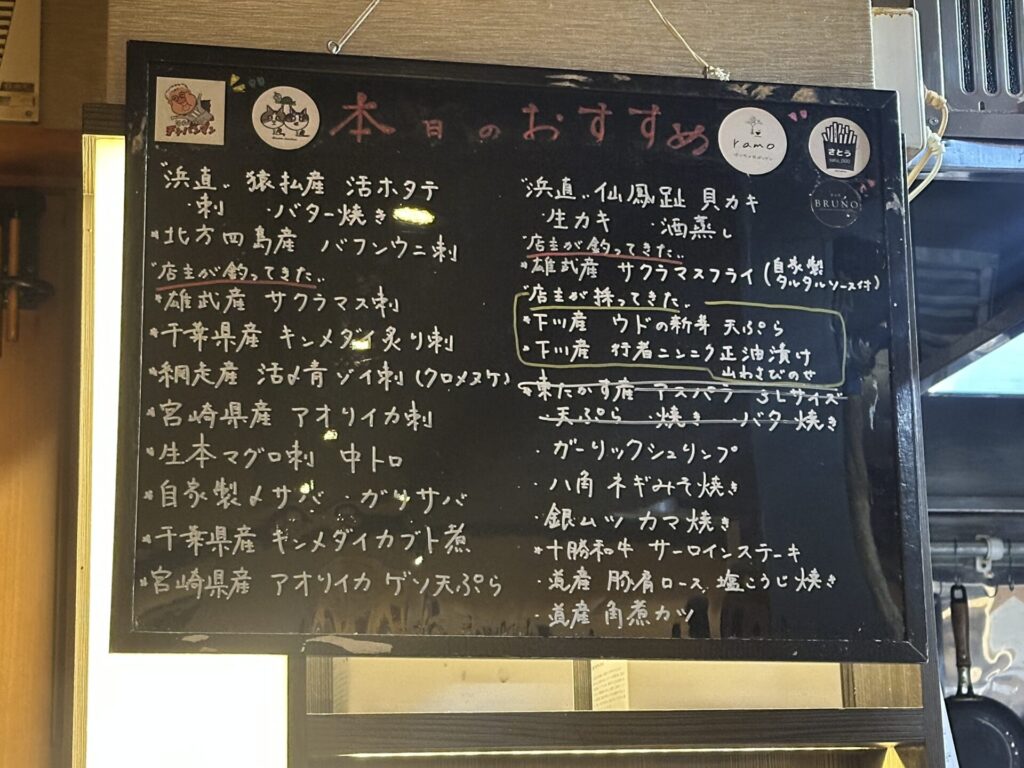 本日のおすすめ
ramo
さとう
BRUNO
"浜直" 猿払産 活ホタテ
・刺 ・バター焼き
*北方四島産 バフンウニ刺
"店主が釣ってきた"
*雄武産 サクラマス刺
*千葉県産 キンメダイ炙り刺
*網走産 活〆青ゾイ刺(クロメヌケ)
*宮崎県産 アオリイカ刺
*生本マグロ刺 中トロ
*自家製〆サバ ・ガリサバ
*千葉県産 キンメダイカブト煮
*宮崎県産 アオリイカ ゲソ天ぷら
"浜直" 仙鳳趾 貝カキ
・生カキ ・酒蒸し
"店主が釣ってきた"
*雄武産 サクラマスフライ(自家製
タルタルソース付)
"店主が採ってきた"
*下川産 ウドの新芽 天ぷら
*下川産 行者ニンニク正油漬け
山わさびのせ
*東たかす産 アスパラ 3Lサイズ
・天ぷら ・焼き ・バター焼き
・ガーリックシュリンプ
・八角 ネギみそ焼き
・銀ムツ カマ焼き
*十勝和牛 サーロインステーキ
・道産 豚肩ロース 塩こうじ焼き
・道産 角煮カツ